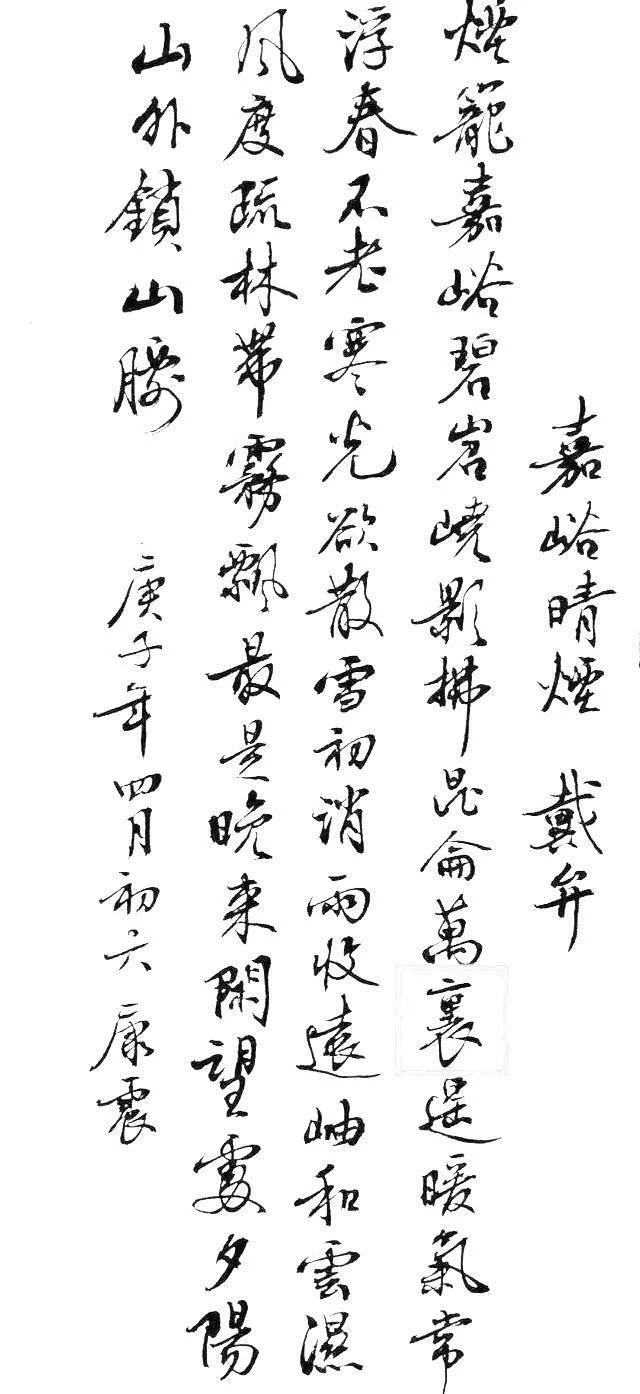 嘉峪晴煙 戴弁
煙籠嘉峪碧岧嶢影拂昆侖萬裏遥暖氣常
浮春不老寒光欲散雪初消雨收遠岫和雲濕
風度疏林帶霧飄最是晚來閑望處夕陽
山外鎖山腰
庚子年四月初六康震